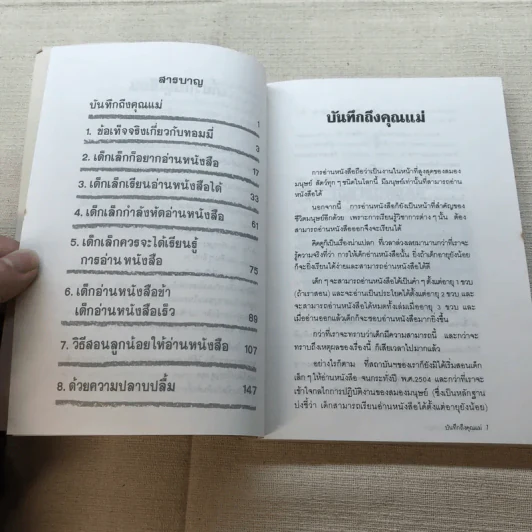 สารบาญ
บันทึกถึงคุณแม่ 1
1. ข้อเท็จจริงเกี่ยวกับทอมมี่ 3
2. เด็กเล็กก็อยากอ่านหนังสือ 17
3. เด็กเล็กเรียนอ่านหนังสือได้ 33
4. เด็กเล็กกำลังหัดอ่านหนังสือ 61
5. เด็กเล็กควรจะได้เรียนรู้
การอ่านหนังสือ 75
6. เด็กอ่านหนังสือช้า
เด็กอ่านหนังสือเร็ว 89
7. วิธีสอนลูกน้อยให้อ่านหนังสือ 107
8. ด้วยความปลาบปลื้ม 147
บันทึกถึงคุณแม่
การอ่านหนังสือถือว่าเป็นงานในหน้าที่สูงสุดของสมอง
มนุษย์ สัตว์ทุก ๆ ชนิดในโลกนี้ มีมนุษย์เท่านั้นที่สามารถอ่าน
หนังสือได้
นอกจากนี้ การอ่านหนังสือก็ยังเป็นหน้าที่สำคัญของ
ชีวิตมนุษย์อีกด้วย เพราะการเรียนรู้วิชาการต่าง ๆ นั้น ต้อง
สามารถอ่านหนังสือออกจึงจะเรียนได้
คิดดูก็เป็นเรื่องน่าแปลก ที่เวลาล่วงเลยมานานกว่าที่เราจะ
รู้ความจริงที่ว่า การให้เด็กอ่านหนังสือนั้น ยิ่งถ้าเด็กอายุยังน้อย
ก็จะยิ่งเรียนได้ง่ายและสามารถอ่านหนังสือได้ดี
เด็ก ๆ จะสามารถอ่านหนังสือได้เป็นคำ ๆ ตั้งแต่อายุ 1 ขวบ
(ถ้าเราสอน) และจะอ่านเป็นประโยคได้ตั้งแต่อายุ 2 ขวบ และ
จะสามารถอ่านหนังสือได้หมดทั้งเล่มเมื่ออายุ 3 ขวบ และ
เมื่ออ่านออกแล้วเด็กก็จะชอบอ่านหนังสือมากยิ่งขึ้น
กว่าที่เราจะทราบว่าเด็กมีความสามารถนี้ และกว่าจะ
ทราบถึงเหตุผลของเรื่องนี้ ก็เสียเวลาไปมากแล้ว
อย่างไรก็ตาม ที่สถาบันฯของเราก็ยังมิได้เริ่มสอนเด็ก
เล็ก ๆ ให้อ่านหนังสือ จนกระทั่งปี พ.ศ.2504 และกว่าที่เราจะ
เข้าใจกลไกการปฏิบัติงานของสมองมนุษย์ (ซึ่งเป็นหลักฐาน
บ่งชี้ว่า เด็กสามารถเรียนอ่านหนังสือได้ตั้งแต่อายุยังน้อย)
บันทึกถึงคุณแม่ 1